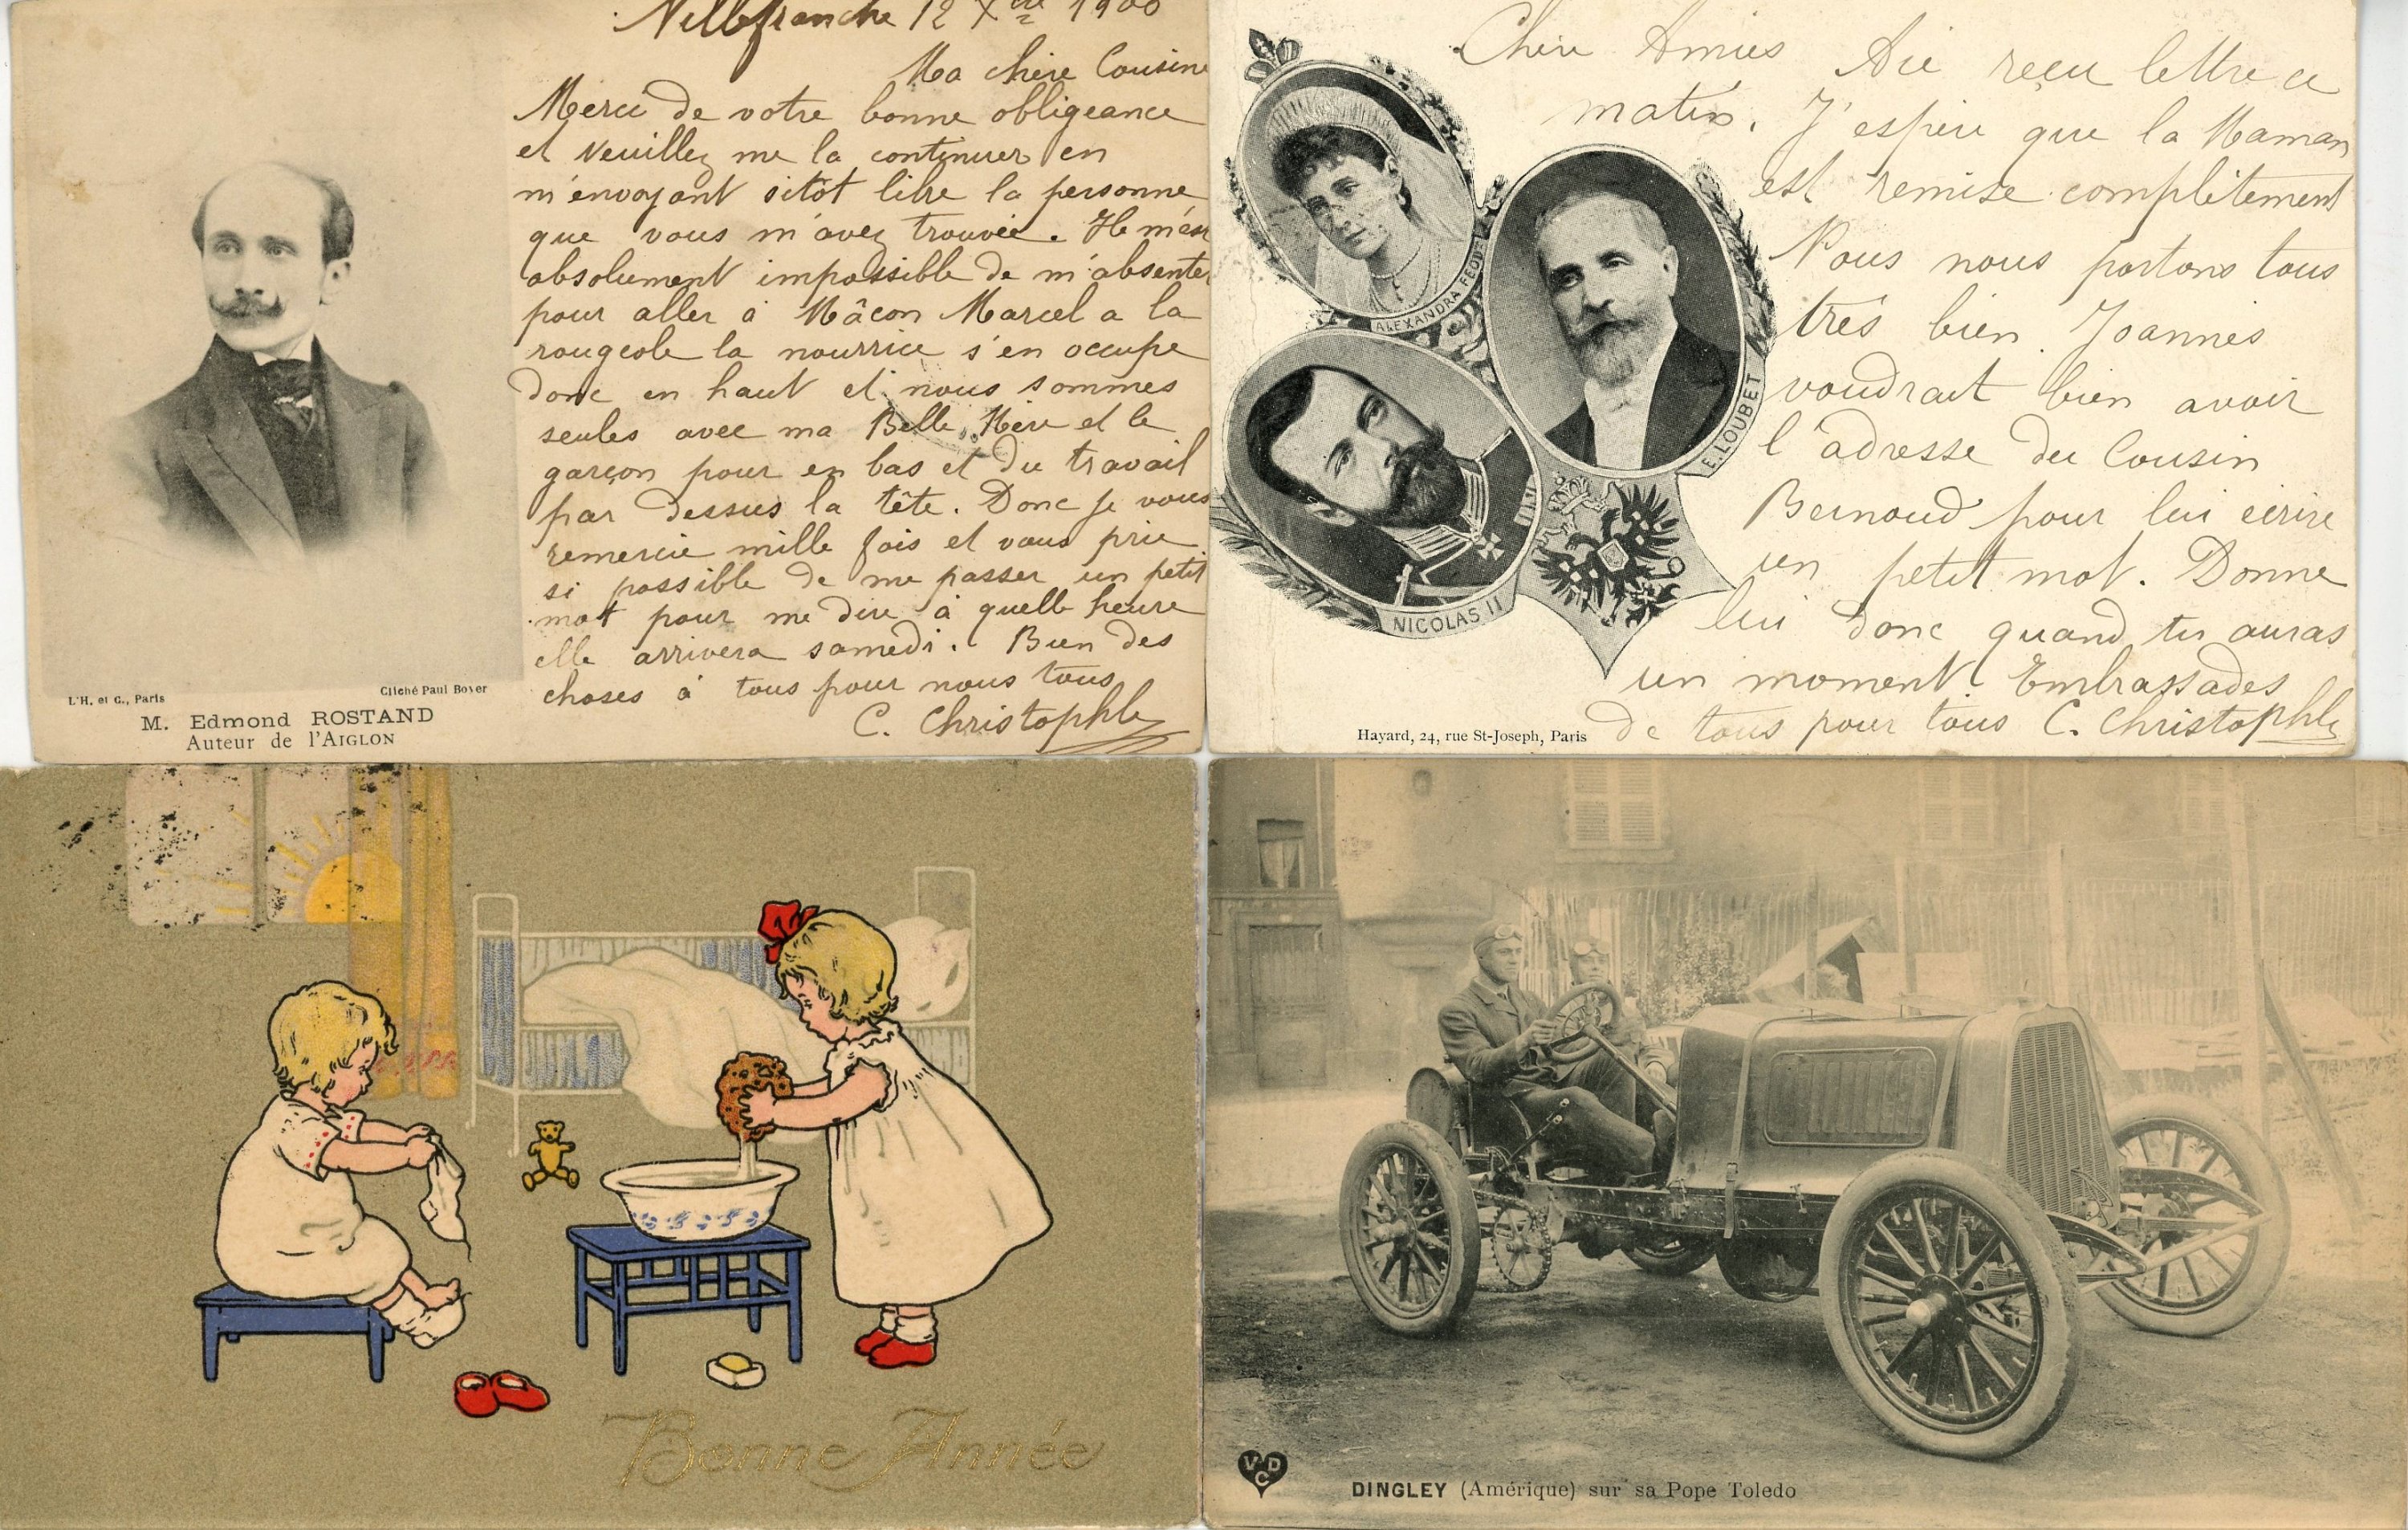 Villefranche 12 Xbre 1900
Ma chère Cousine
Merci de votre bonne obligeance
et veuillez me la continuer en
m'envoyant sitôt libre la personne
que vous m'avez trouvée. Il m'est
absolument impossible de m'absenter
pour aller à Mâcon Marcel a la
rougeole la nourrice s'en occupe
donc en haut et nous sommes
seules avec ma Belle Mère et le
garçon pour en bas et du travail
par dessus la tête. Donc je vous
remercie mille fois et vous prie
si possible de me passer un petit
mot pour me dire à quelle heure
elle arrivera samedi. Bien des
choses à tous pour nous tous
C. Christophle
L'H. et C., Paris
Cliché Paul Boyer
M. Edmond ROSTAND
Auteur de l'AIGLON
Chère Amies Ai reçu lettre ce
matin. J'espère que la Maman
est remise complètement
Nous nous portons tous
très bien. Joannes
voudrait bien avoir
l'adresse du Cousin
Bernoud pour lui écrire
un petit mot. Donne
lui donc quand tu auras
un moment. Embrassades
de tous pour tous C. Christophle
ALEXANDRA FEODE
E. LOUBET
NICOLAS II
Hayard, 24, rue St-Joseph, Paris
Bonne Année
VDC
DINGLEY (Amérique) sur sa Pope Toledo